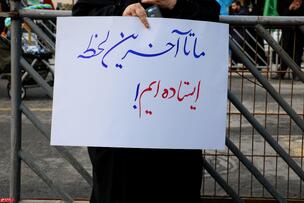 ما تا آخرین لحظه
ایستاده ایم!